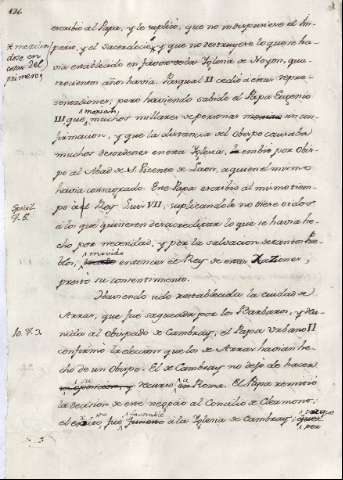 126
escribió al Papa, y lo suplicó, que no indispusiese el Im-
perio, y el Sacerdocio, y que no destruyese lo que se ha-
via establecido en favor de la Iglesia de Noyon, qua-
trocientos años havia. Pasqual II cedió a estas repre-
sentaciones; pero haviendo sabido el Papa Eugenio
III que morian muchos millares de personas sin con-
firmacion, y que la distancia del Obispo causaba
muchos desordenes en esta Iglesia, embió por Obis-
po al Abad de S. Vicente de Laon, a quien el mismo
havia consagrado. Este Papa escribió al mismo tiem-
po al Rey Luis VII, suplicandole no diese oidos
a los que quisieren desacreditar lo que se havia he-
cho por necesidad, y por la salvacion de tantos Pue-
blos; movido entonces el Rey de estas razones,
prestó su consentimiento.
Haviendo sido restablecida la ciudad de
Arras, que fue saqueada por los Barbaros, y reu-
nida al Obispado de Cambray, el Papa Urbano II
confirmó la eleccion que los de Arras havian he-
cho de un Obispo. El de Cambray no dejó de hacer
recurso en Roma. El Papa remitió
la decision de este negocio al Concilio de Clermont;
el exito fue favorable a la Iglesia de Cambray;